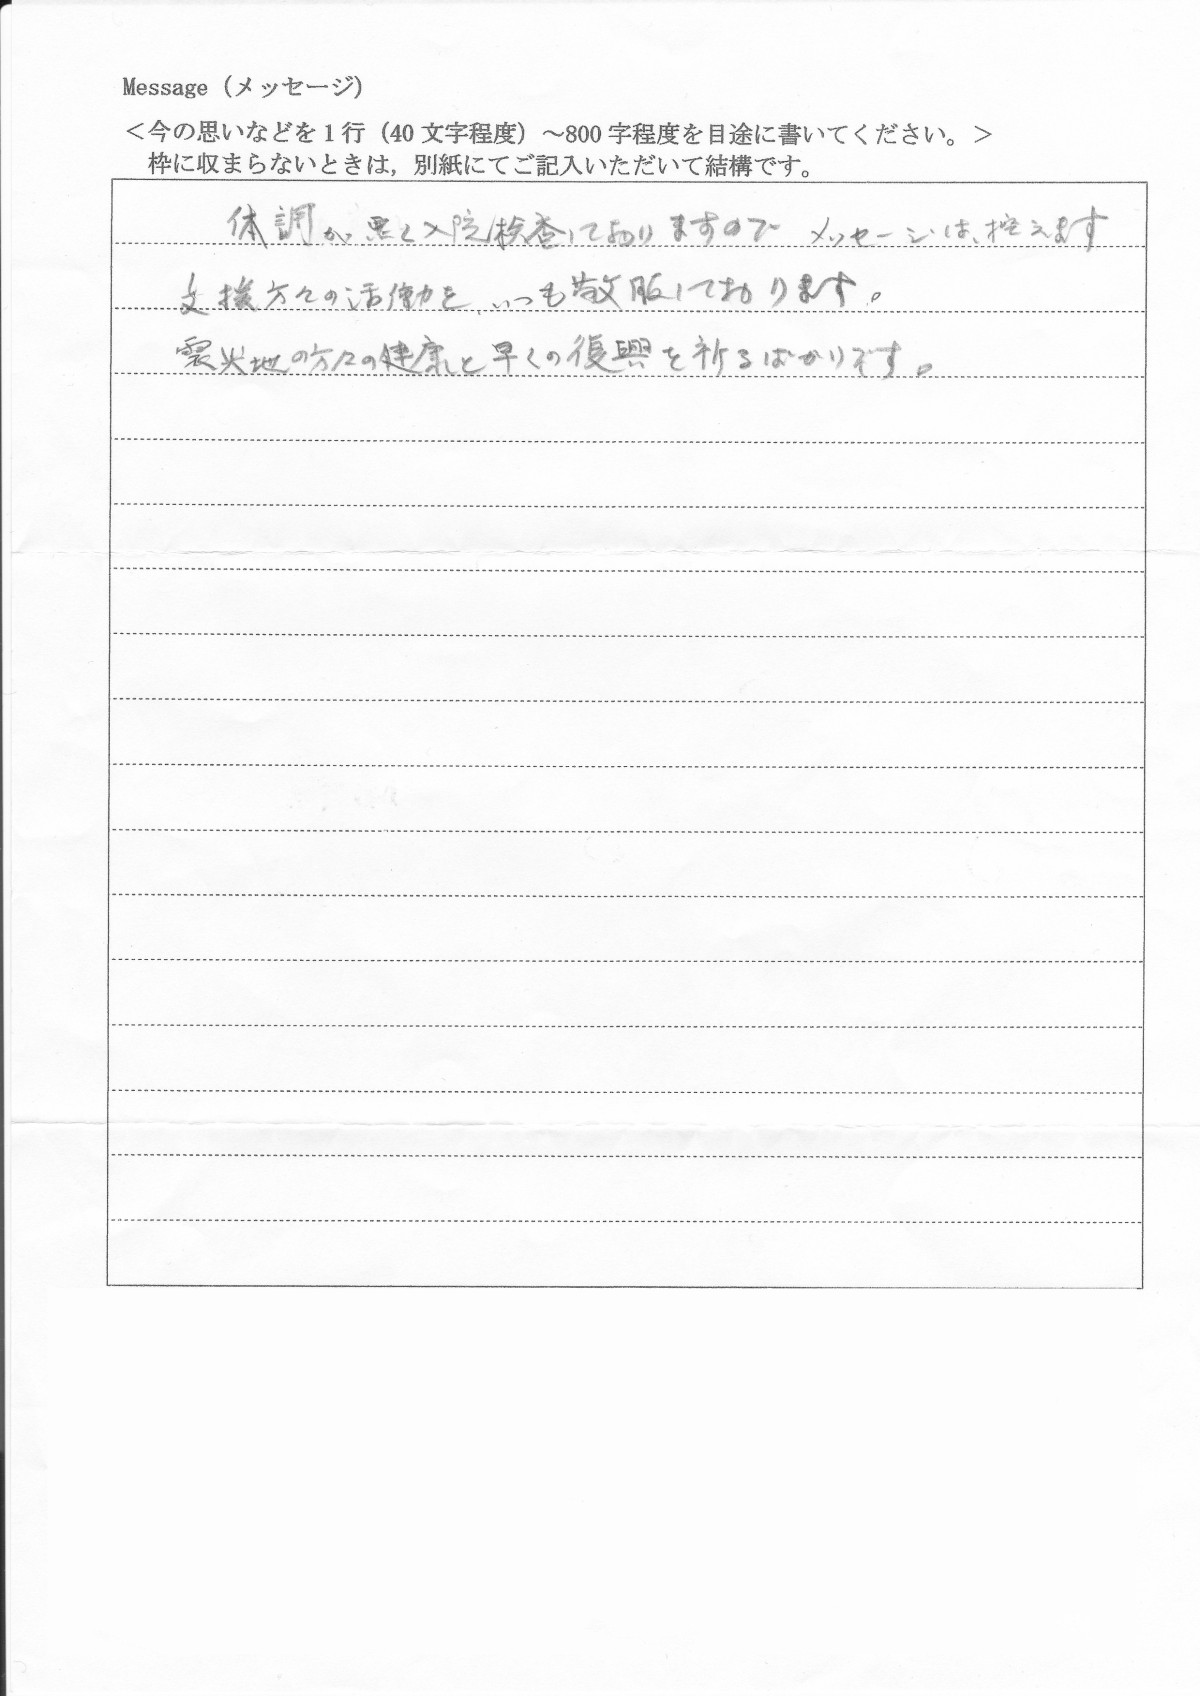 Message（メッセージ）
＜今の思いなどを１行（40 文字程度）～800 字程度を目途に書いてください。＞
枠に収まらないときは，別紙にてご記入いただいて結構です。
体調が悪く入院検査しておりますので メッセージは、控えます
支援方々の活動を、いつも敬服しております。
震災地の方々の健康と早くの復興を祈るばかりです。